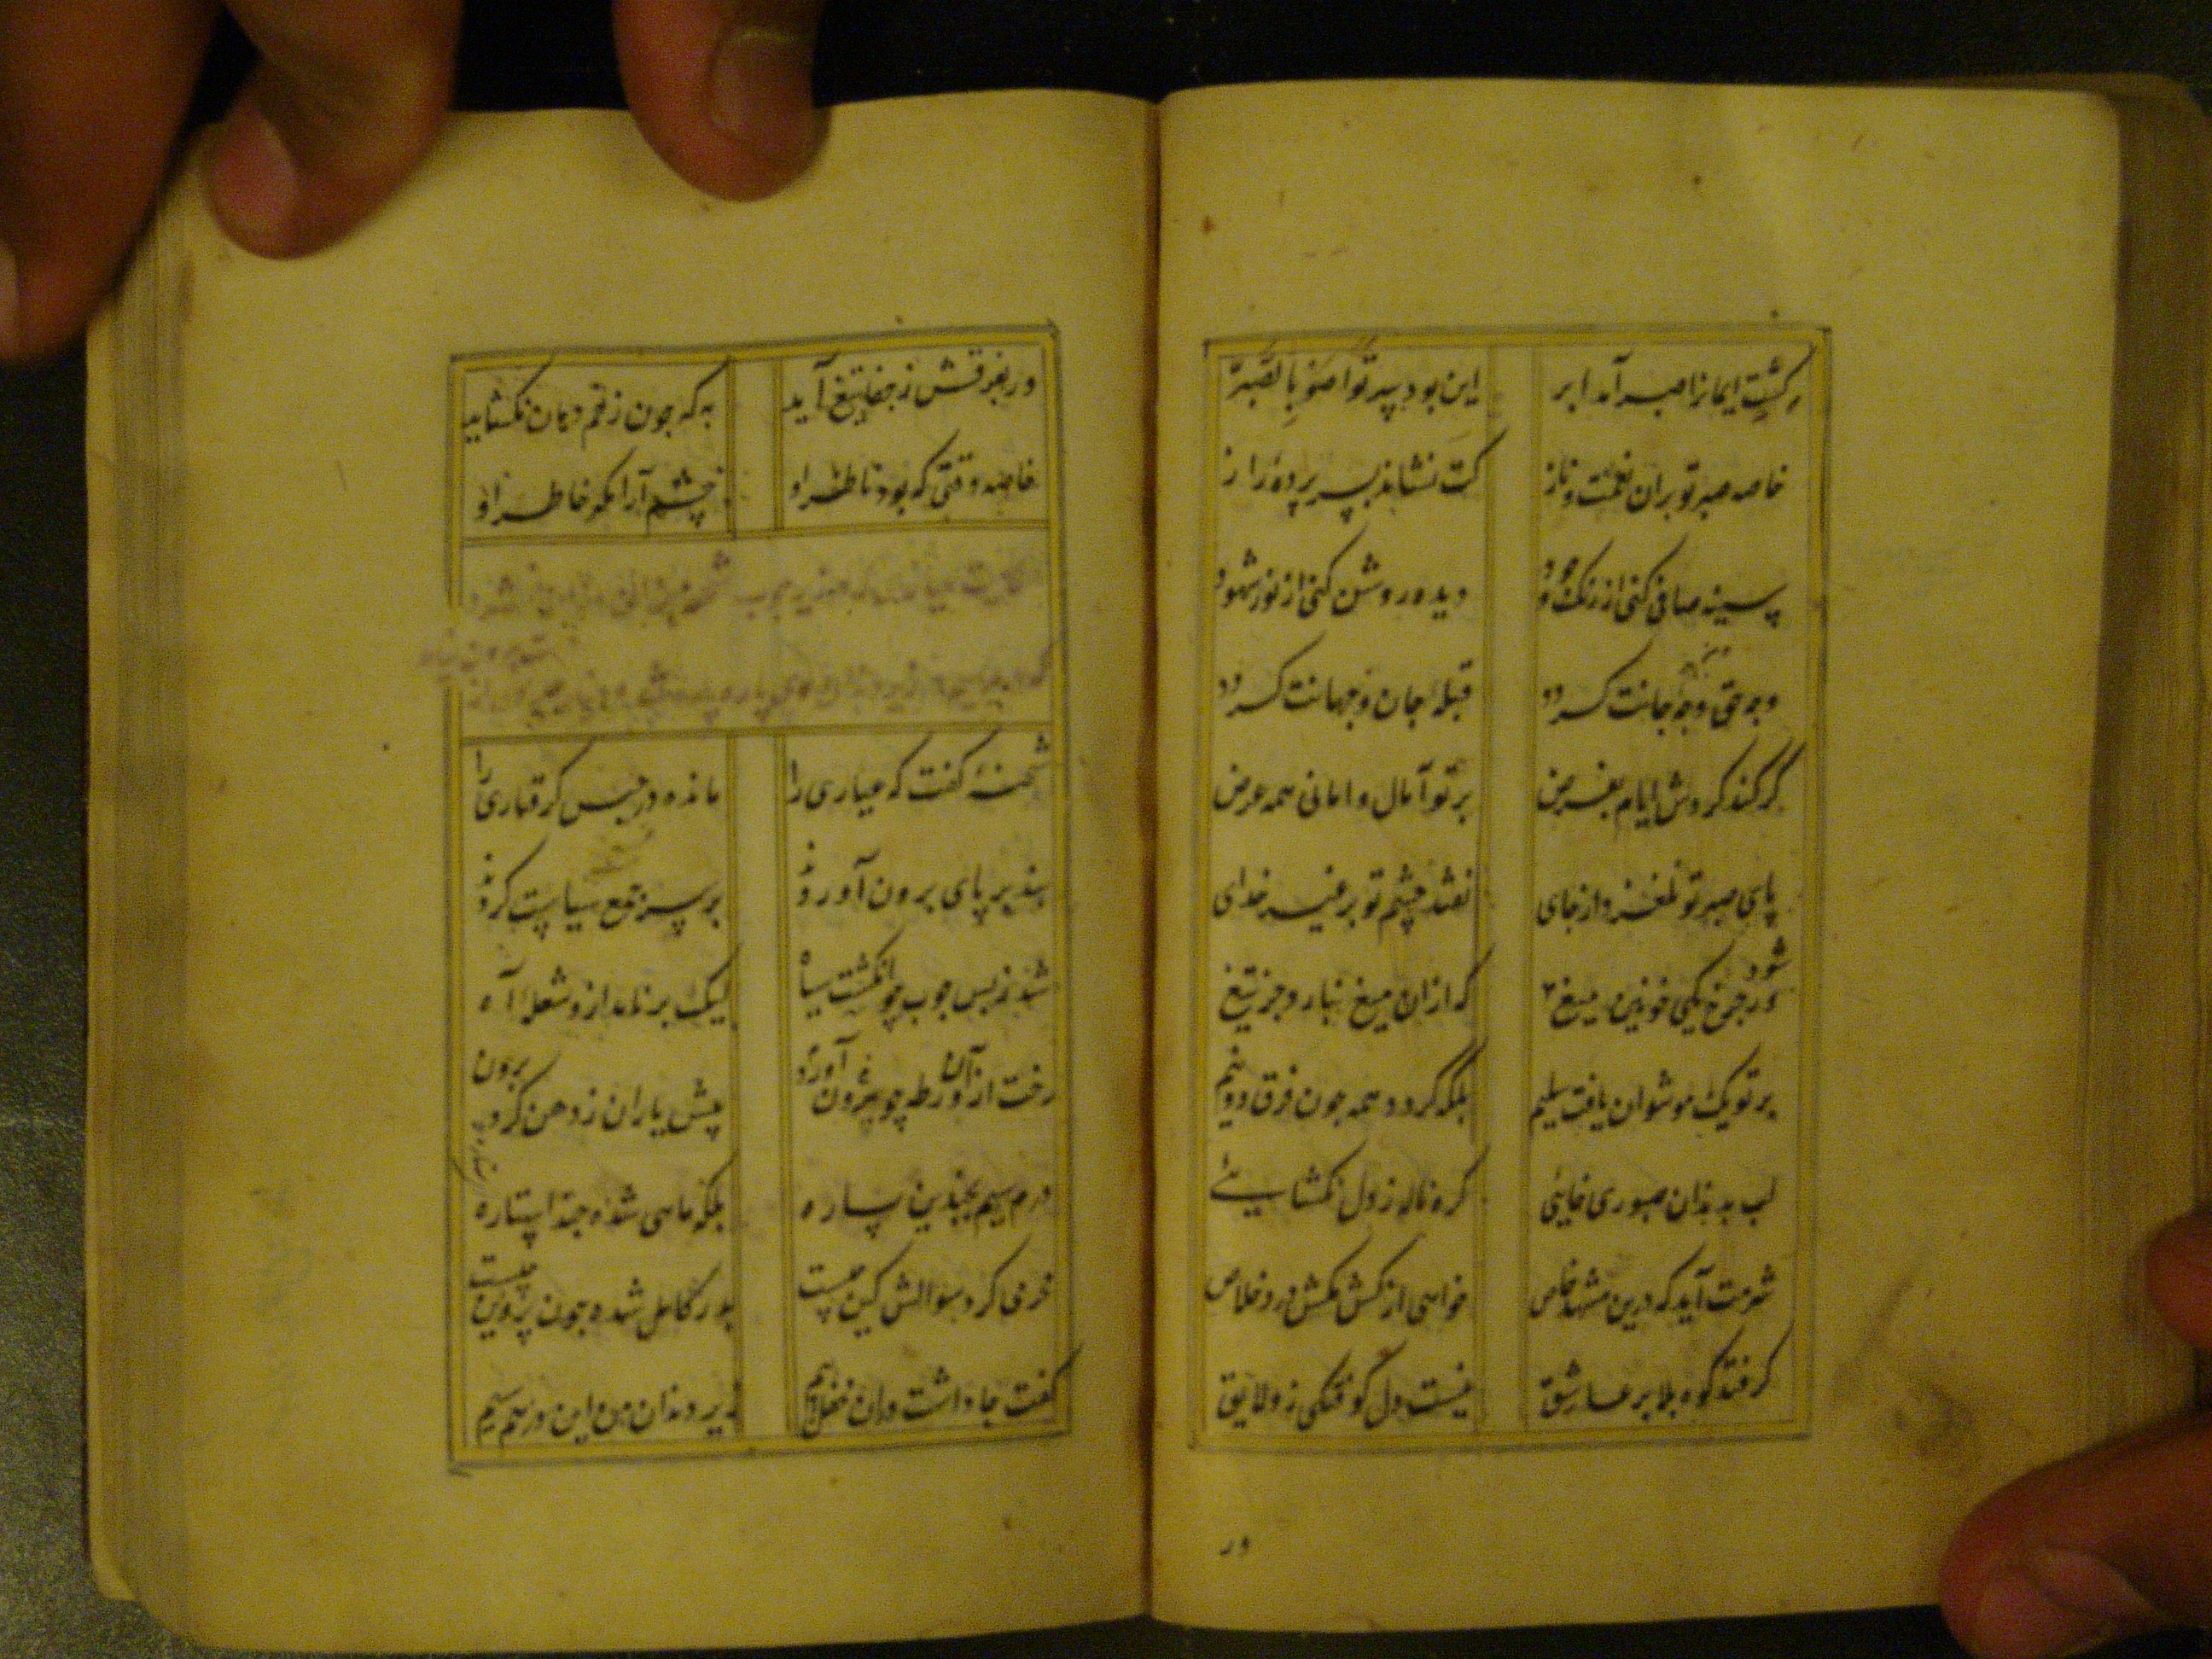 کشت ایمانرا صبر آمد ابر این بود پیر تو اصوا بالصبر
خاصه صبر تو بران نعمت و ناز کت نشاند بسر پرده راز
سینه صافی کنی از زنگ وجود دیده روشن کنی از نور شهود
وجه حق وجهه جانت کردد قبله جان و جهانت کردد
کر کند کردش ایام بغرض بر تو آمال و امانی همه عرض
پای صبر تو نلغزد از جای نفتد چشم تو بر غیر خدای
ور شود چرخ یکی خونین میغ که ازان میغ نبارد جز تیغ
بر تو یک مو نتوان یافت سلیم بلکه کردد همه چون فرق دو نیم
لب بدندان صبوری خایی کره ناله ز دل نکشایی
شرمت آید که درین مشهد خاص خواهی از کش مکش درد خلاص
کر فتد کوه بلا بر عاشق نیست دل کوفتکی زو لایق
ور
ور بفرقش ز جفا تیغ آید به که چون زخم دهان نکشاید
خاصه وقتی که بود ناظر او چشم آرامکه خاطر او
شحنه کفت که عیاری را مانده در حبس کرفتاری را
بند بر پای برون آوردند بر سر جمع سیاست کردند
شد ز بس چوب چو انکشت سیاه لیک بر نامد ازو شعله آه
رخت ازان ورطه چو آورد برون پیش یاران ز دهن کرد برون
درم سیم بچندین پاره بلکه ماهی شده چند استاره
محرمی کرد سوالش کین چیست بدر کامل شده چون پروین چیست
کفت جا داشت دران محفل بیم زیر دندان من این درهم سیم